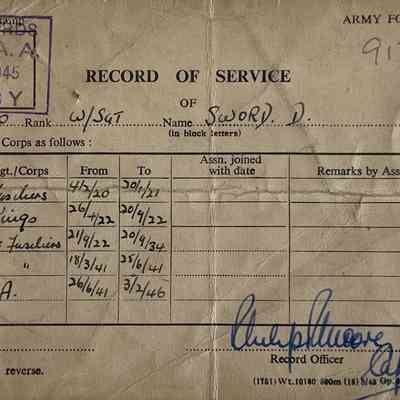 ARMY FO
RECORDS
A. A.
945
BY
917
RECORD OF SERVICE
OF
Rank W/SGT Name SWORD. D.
(in block letters)
Corps as follows :
gt./Corps From To Assn. joined with date Remarks by Ass
Fusiliers 4/2/20 20/1/21
Kings 26/1/22 20/9/22
Fusiliers 21/9/22 20/9/34
" 18/3/41 25/6/41
A. 26/6/41 3/2/46
Philip Moore
Cap
Record Officer
reverse.
(1751) Wt.10180 500m